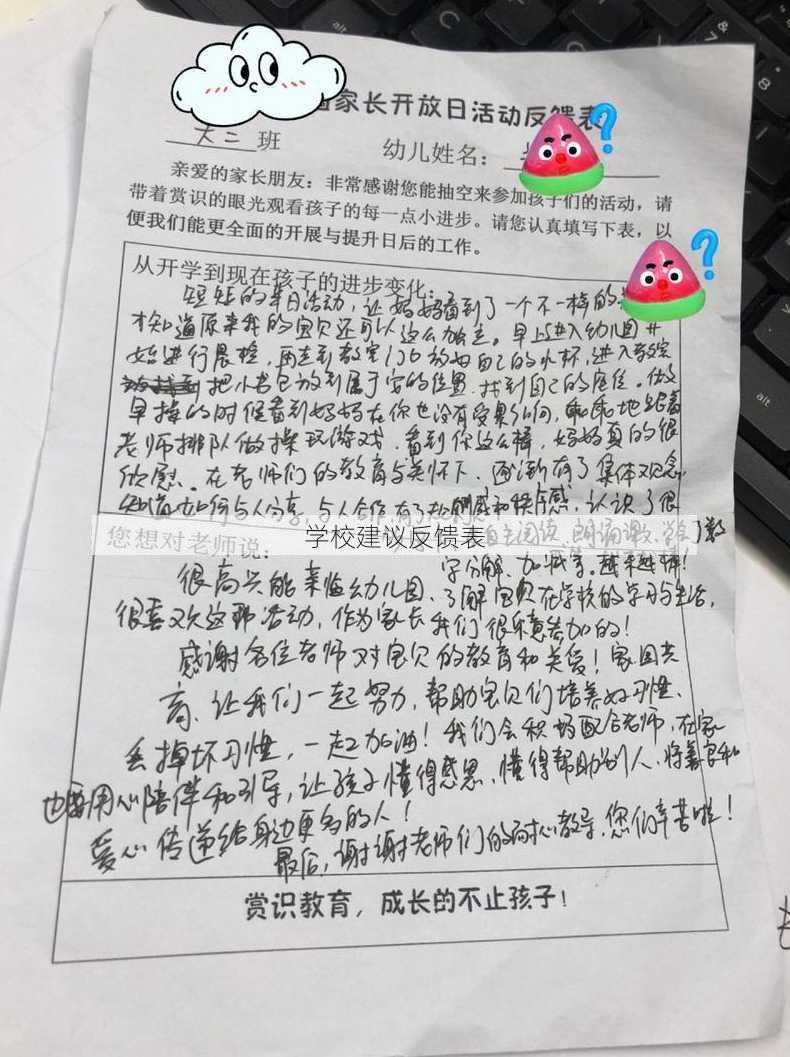 家长开放日活动反馈表
大二班 幼儿姓名：
亲爱的家长朋友：非常感谢您能抽空来参加孩子们的活动，请
带着赏识的眼光观看孩子的每一点小进步。请您认真填写下表，以
便我们能更全面的开展与提升日后的工作。
从开学到现在孩子的进步变化：
短短的半日活动，让妈妈看到了一个不一样的
才知道原来我的宝贝还可以这么加走。早上进入幼儿园开
始进行晨检，再走到教室门口放好自己的水杯，进入教室
把小书包放到属于宝的位置，找到自己的座位。做
早操的时候看到妈妈在你也没有受影响，乖乖地跟着
老师排队做操玩游戏，看到你这么棒，妈妈真的很
欣慰。在老师们的教育与关怀下，逐渐有了集体观念
知道如何与人分享，与人合作，有了和秩序感，认识了很
自主阅读、朗诵
学校建议反馈表
您想对老师说：
字分解、加减等，越来越棒！
很高兴能来临幼儿园，了解宝贝在学校的学习与生活，
很喜欢这种活动，作为家长我们很乐意参加的！
感谢各位老师对宝贝的教育和关爱！家园共
育，让我们一起努力，帮助宝贝们培养好习惯，
丢掉坏习惯，一起加油！我们会积极配合老师，在家
也要用心陪伴和引导，让孩子懂得感恩，懂得帮助别人，将善良和
爱心传递给身边更多的人！
最后，谢谢老师们的耐心教导，您们辛苦啦！
赏识教育，成长的不止孩子！